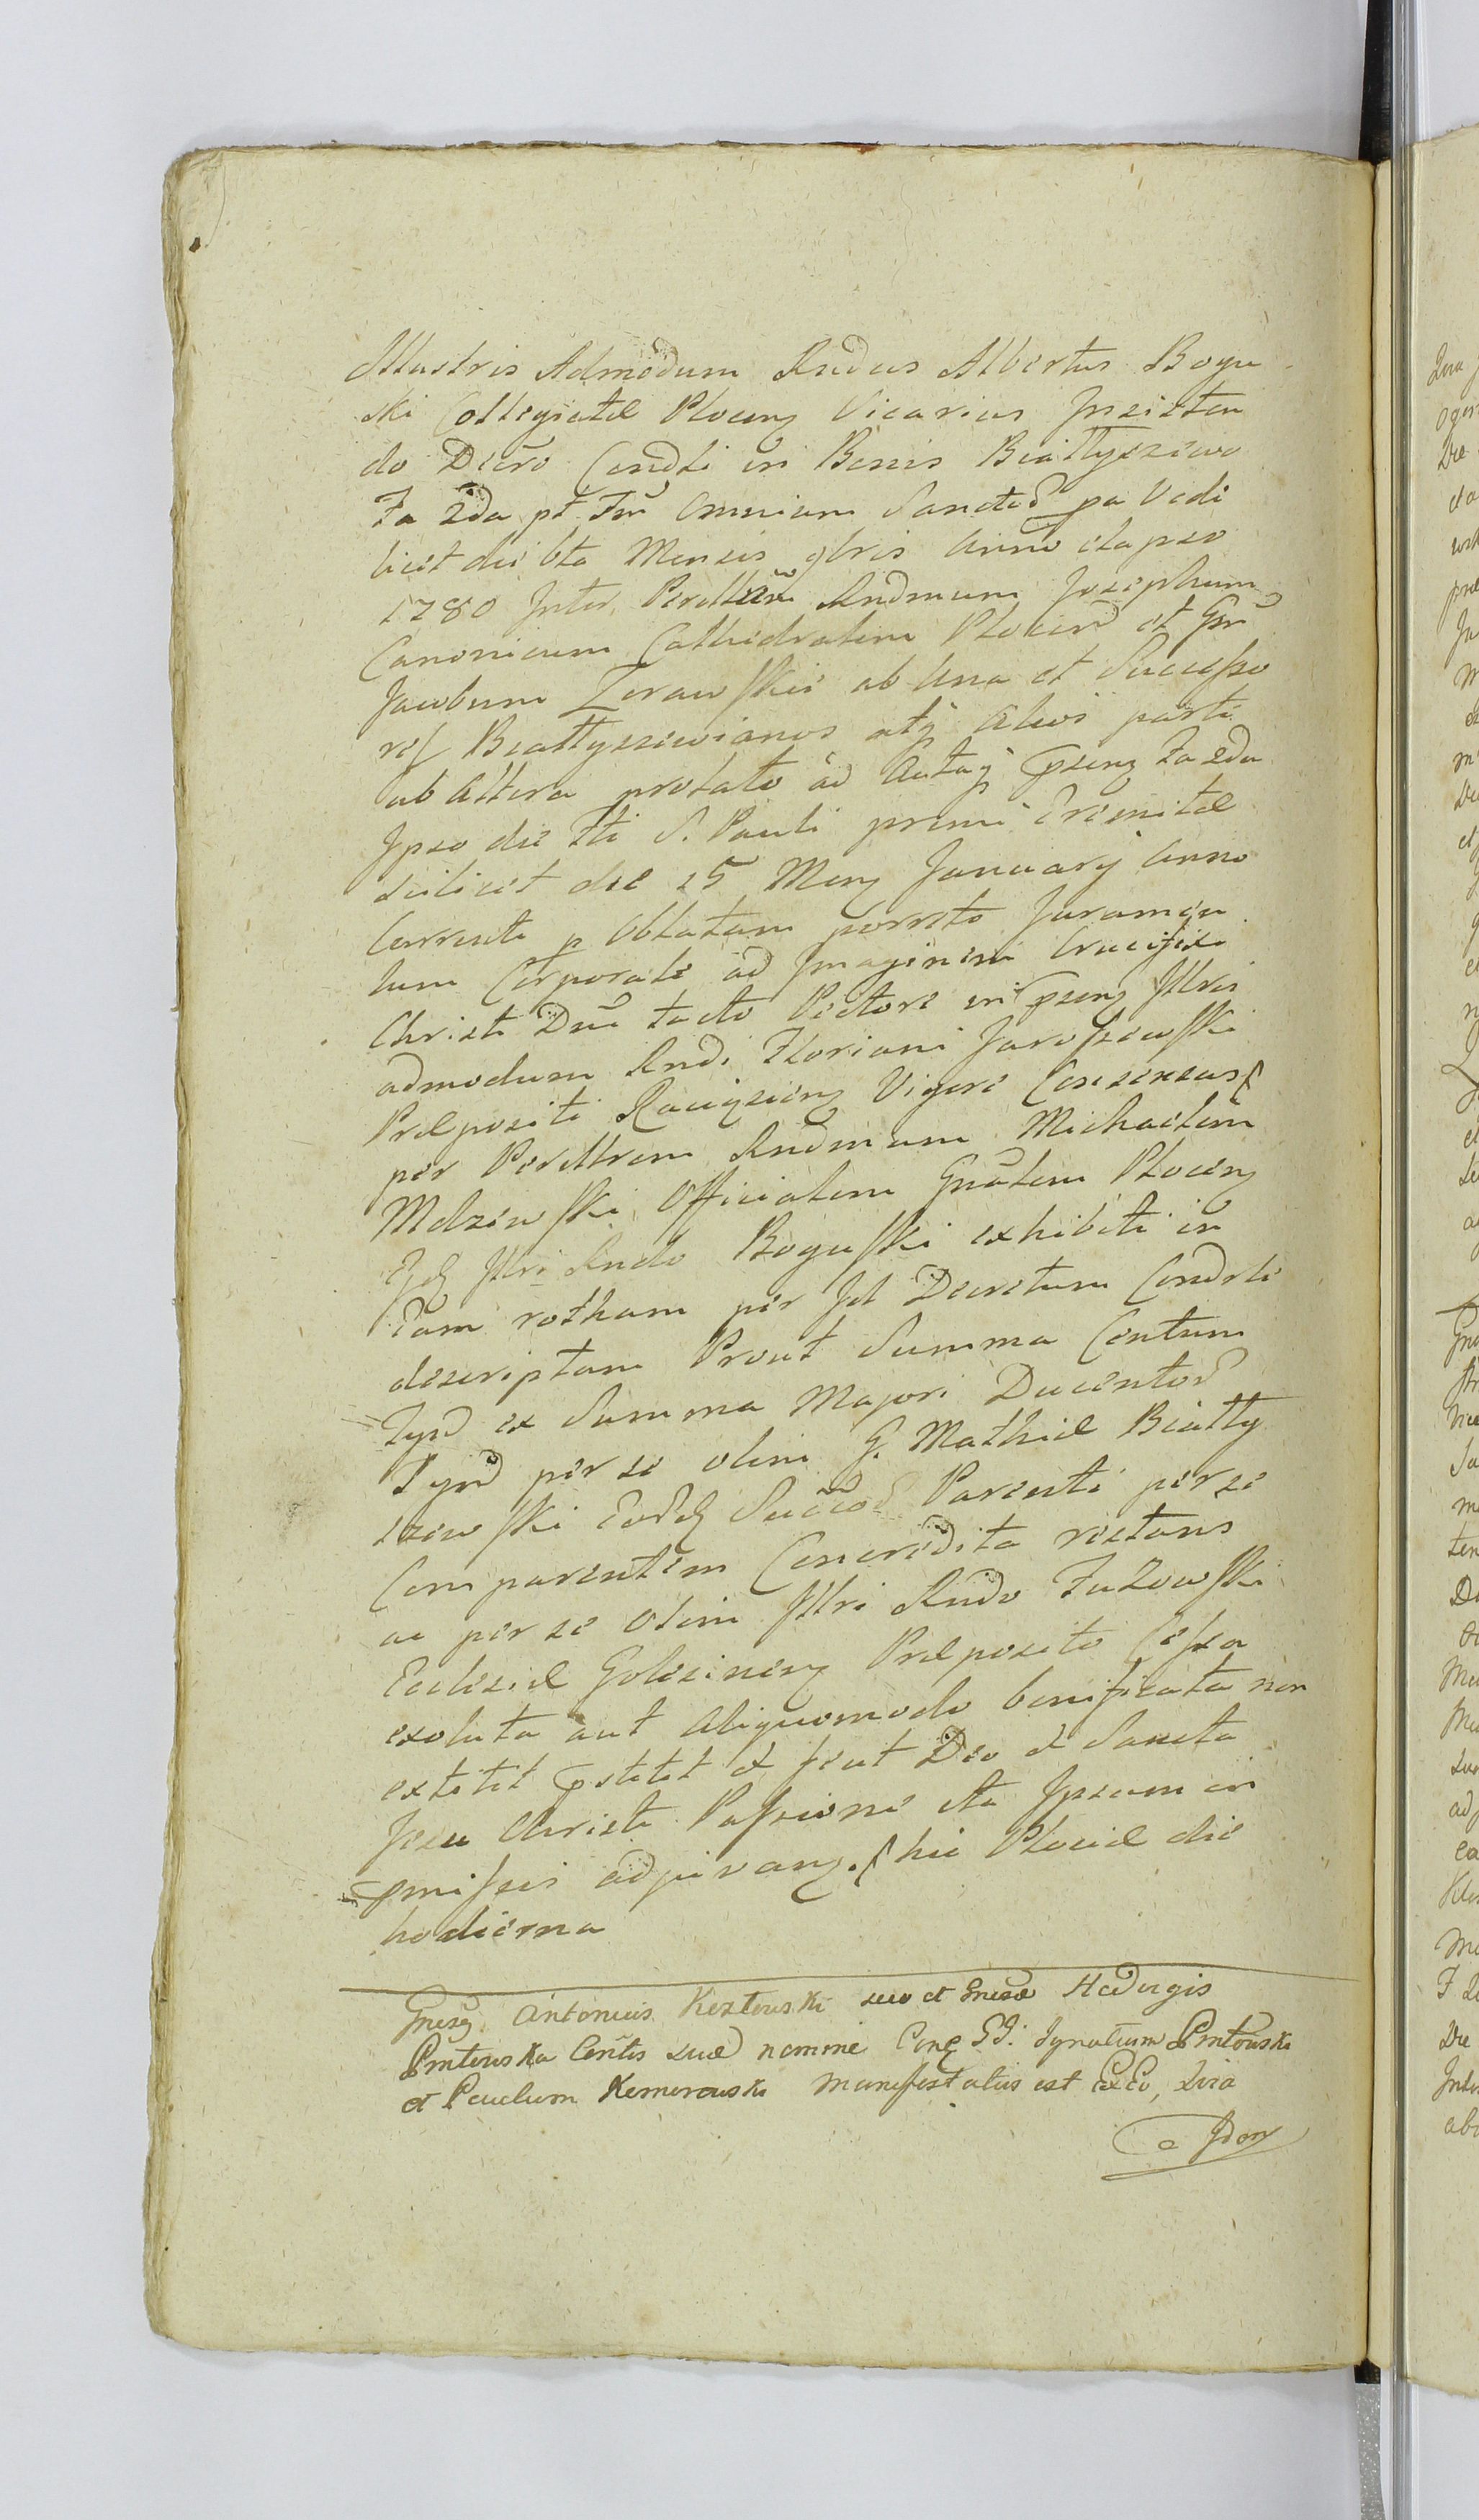 Illustris Admodum Rndus Albertus Bogu
ski Collegiatæ Plocenz Vicarius Insisten
do Decro Condti in Bonis Białłyszewo
Fa 2da pt. Fm Omnium Sanctor pa Vide
licet die 6ta Mensis 9bris Anno elapso
1780 Inter Perlltrm Rndmum Josephum
Canonicum Cathedralem Plocen et Gnr
Jacobum Zorawskie ab Una et Successo
res Białłyszewianos atq alios parte
ab Altera prolato ad Actaq psenz Fa 2da
Ipso die Fti S. Pauli primi Eremitæ
scilicet die 15 Menz January Anno
Currenti p Oblatam porrcto Juramen
tum Corporale ad Imaginem Crucifixi
Christi Dni tacto Pectore in psenz Illris
admodum Rndi Floriani Jaroszewski
Præpositi Raciązienz Vigore Consensus
per Perilltrem Rndmum Michaelem
Mdzewski Officialem Gnalem Plocenz
Ejd Illri Rndo Boguski exhibiti in
Eam rotham per Id Decretum Condrti
descriptam Prout Summa Centum
Tynf ex Summa Majori Ducentor
Tynf per se olim G. Mathiæ Białły
szewski Eord Succor Parenti per se
Comparentem Concredita restans
ac per se Olim Illri Rndo Zuzowski
Ecclesiæ Golesinenz Præposito Cessa
exoluta aut Aliquomodo bonificata non
extitit pstitit et sicut Deo et Sancta
Jesu Christi Passione ita Ipsum in
pmissis adjuvanz. hic Plociæ die
hodierna
Gnesq Antonius Kozłowski suo et Gnesæ Hedvigis
Contis suæ nomine Cong GG. Ignatium
et Paulum Kemerowski Manifestatus est
Idem